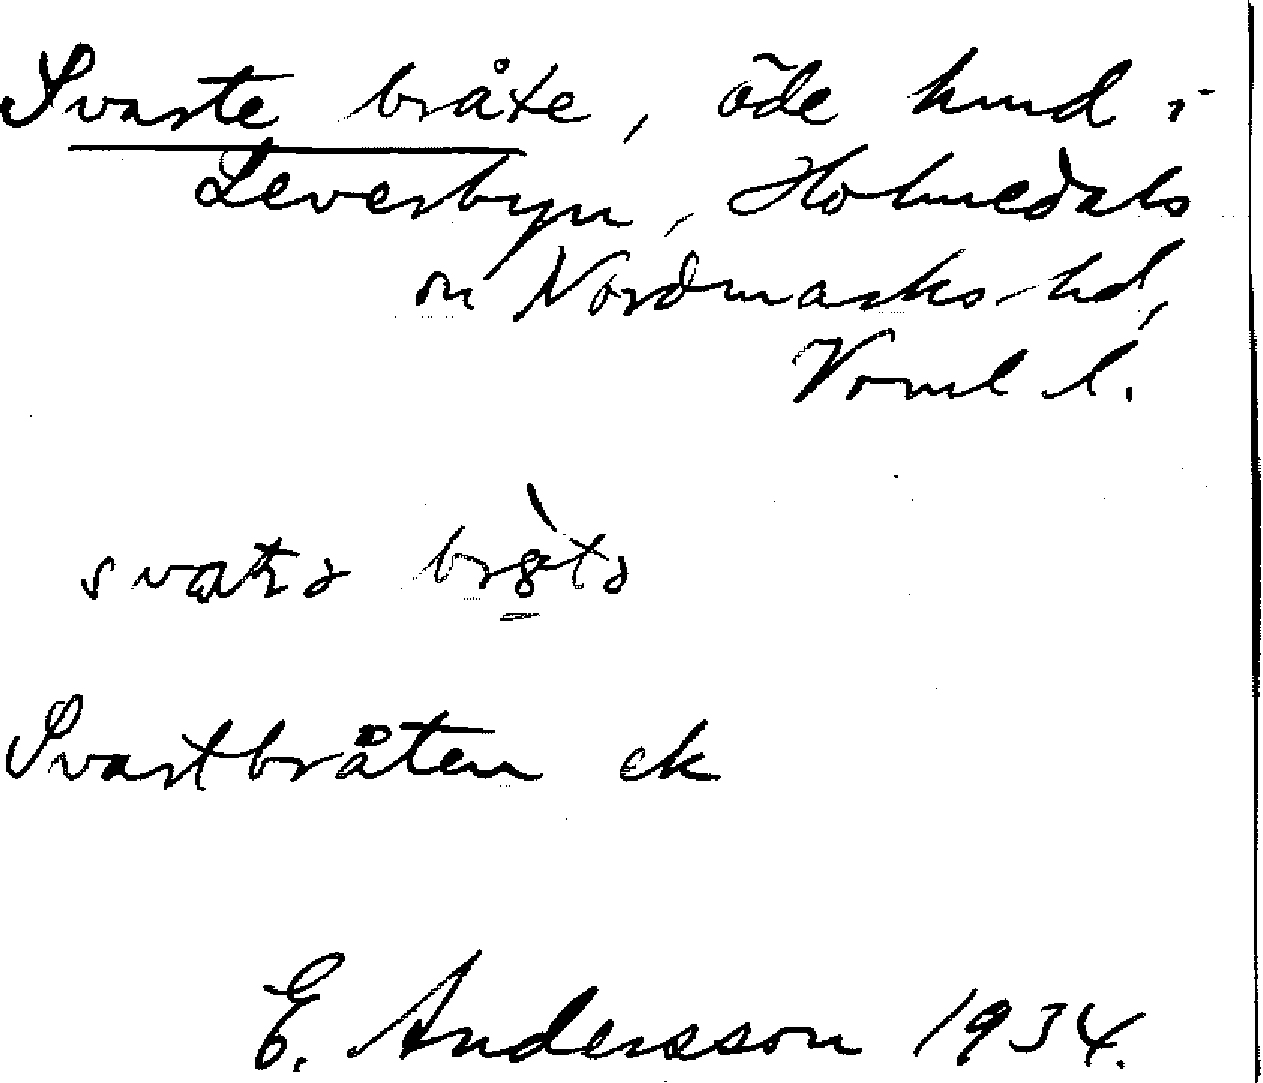 Svarte bråte, öde hmd i
Leverbyn, Holmedals
sn Nordmarks hd,
Verml l.
Svartbråten ek
E. Andersson 1934.